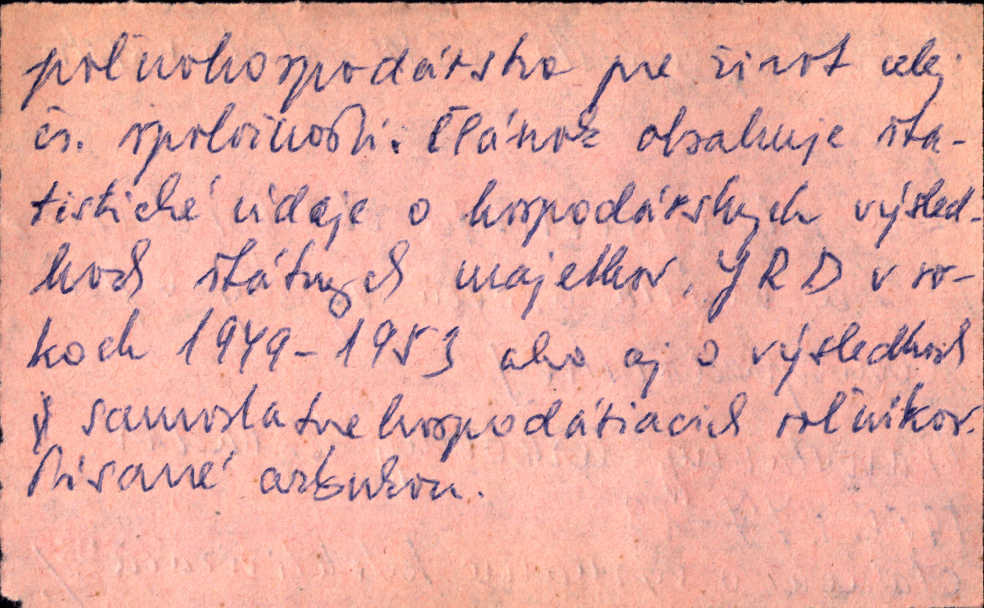 poľnohospodárstva pre život celej
čs. spoločnosti. Článok obsahuje šta-
tistické údaje o hospodárskych výsled-
koch štátnych majetkov, JRD v ro-
koch 1949-1953 ako aj o výsledkoch
samostatne hospodáriacich roľníkov.
Písané azbukou.